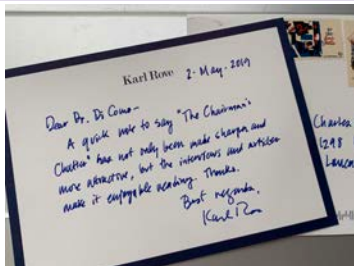 Karl Rove
2 - May - 2019
Dear Dr. Di Como -
A quick note to say "The Chairman's
Chatter" has not only been made sharper and
more attractive, but the interviews and articles
make it enjoyable reading. Thanks.
Best regards,
Karl Rove
Charles
1298